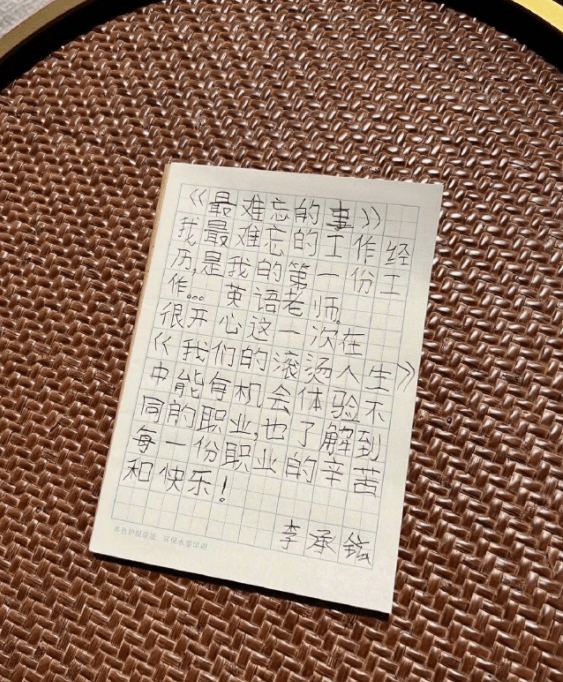 《最难忘的事》
我最难忘的工作经
历,是我的第一份工
作… 英语老师
很开心这一次在
《我们的滚烫人生》
中能有机会体验不
同的职业,也了解到
每一份职业的辛苦
和快乐!
李承铉